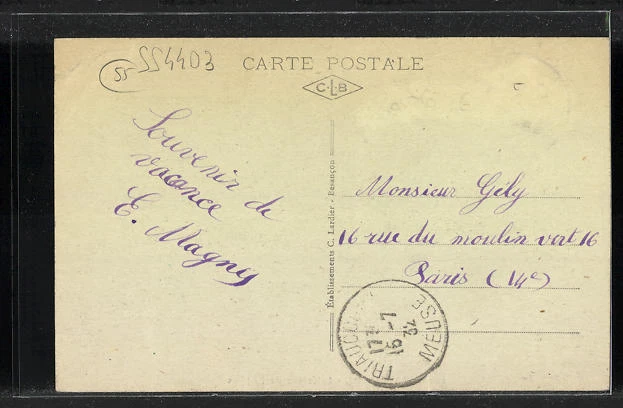 55
554403
CARTE POSTALE
C·L·B
Souvenir de
vacance
E. Magny
Établissements C. Lardier - Besançon
Monsieur Gély
16 rue du moulin vert 16
Paris (14e)
17 H
16 - 7
32
MEUSE